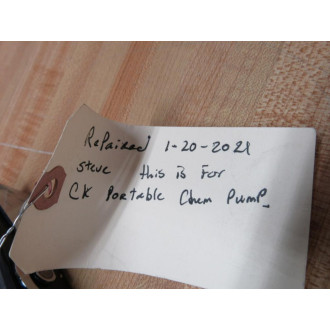 Repaired 1-20-2021
Steve this is For
CK Portable Chem Pump